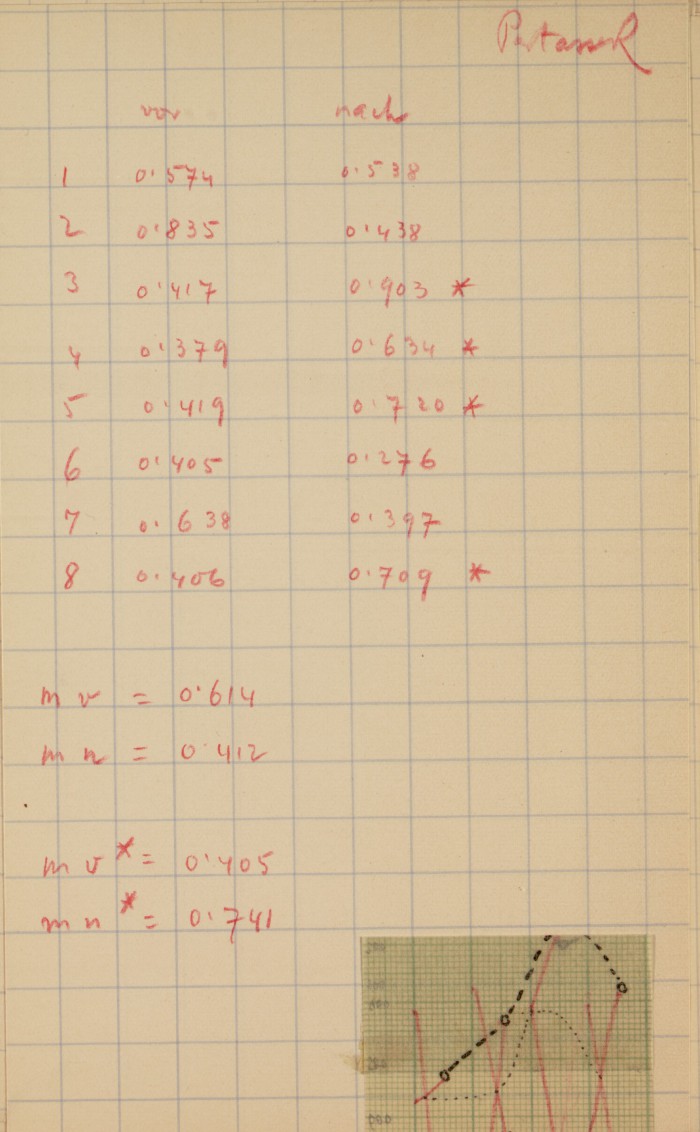 vor nach
1 0.574 0.538
2 0.835 0.438
3 0.417 0.903 *
4 0.379 0.634 *
5 0.419 0.720 *
6 0.405 0.276
7 0.638 0.397
8 0.406 0.709 *
m v = 0.614
m n = 0.412
m v* = 0.405
m n* = 0.741